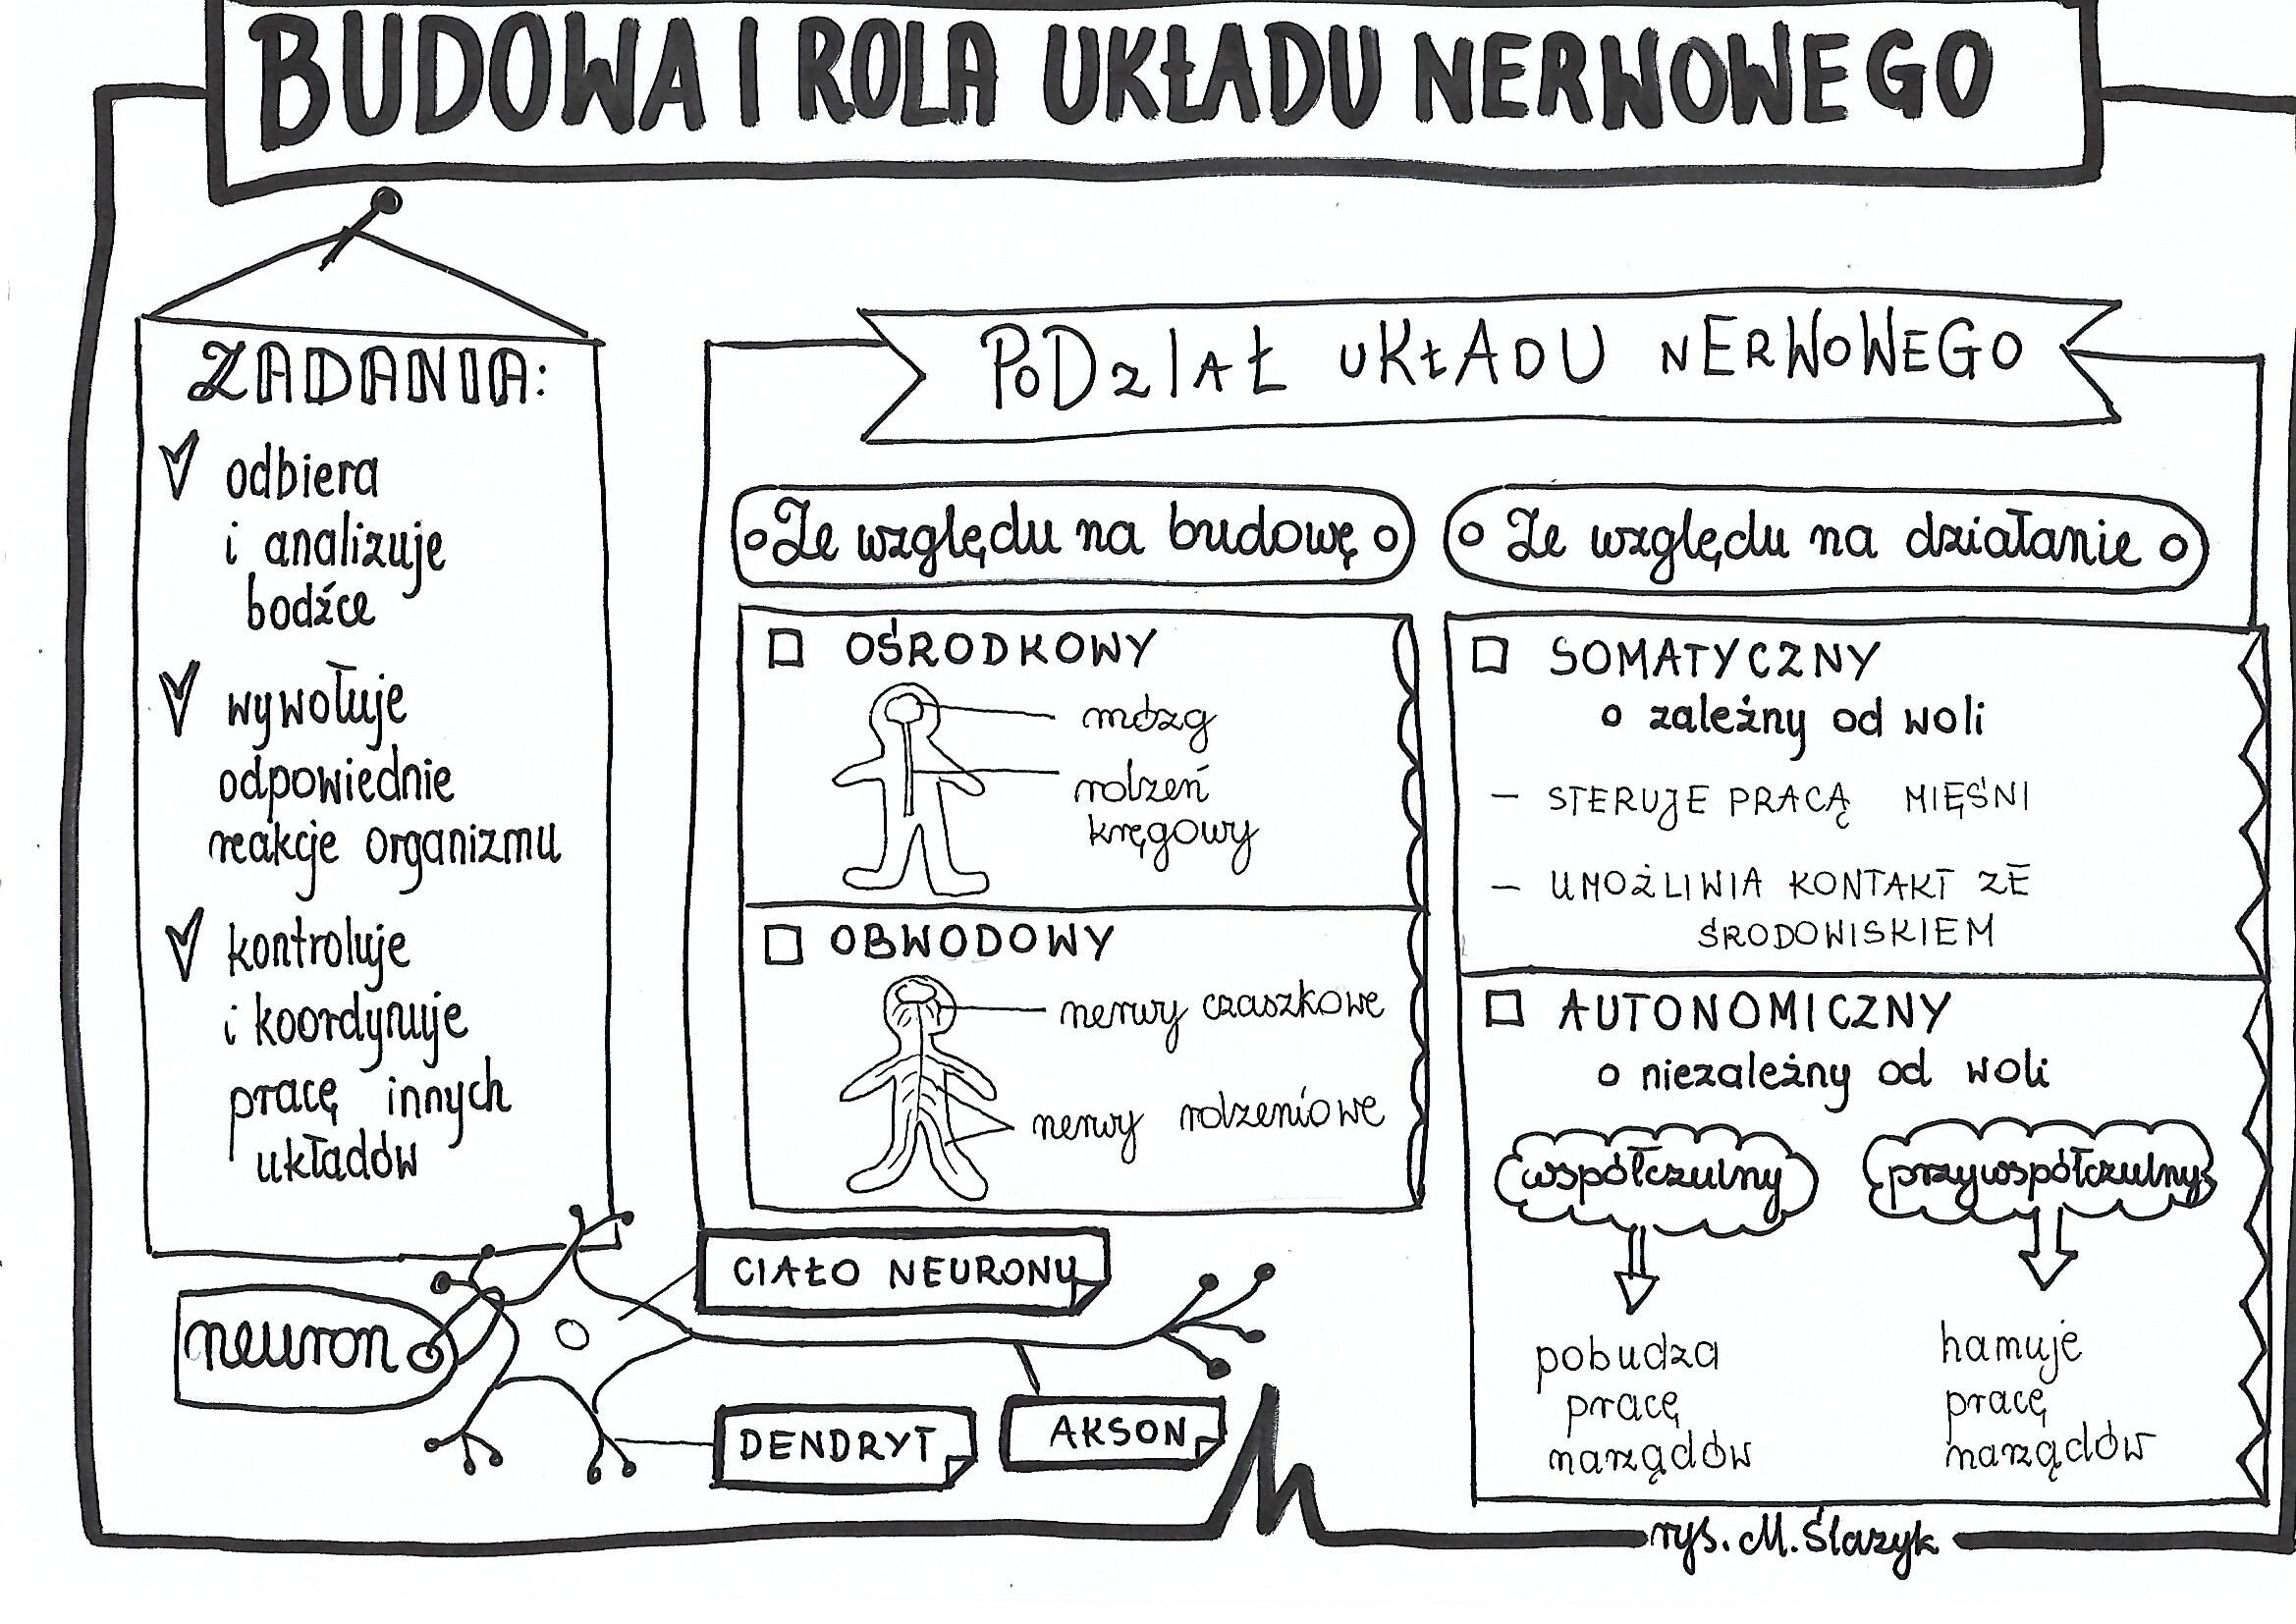 BUDOWA I ROLA UKŁADU NERWOWEGO
ZADANIA:
odbiera
i analizuje
bodźce
wywołuje
odpowiednie
reakcje organizmu
kontroluje
i koordynuje
pracę innych
układów
PODZIAŁ UKŁADU NERWOWEGO
Ze względu na budowę
OŚRODKOWY
mózg
rdzeń
kręgowy
OBWODOWY
nerwy czaszkowe
nerwy rdzeniowe
Ze względu na działanie
SOMATYCZNY
zależny od woli
- STERUJE PRACĄ MIĘŚNI
- UMOŻLIWIA KONTAKT ZE
ŚRODOWISKIEM
AUTONOMICZNY
niezależny od woli
współczulny
pobudza
pracę
narządów
przywspółczulny
hamuje
pracę
narządów
neuron
CIAŁO NEURONU
DENDRYT
AKSON
rys. M. Ślazyk